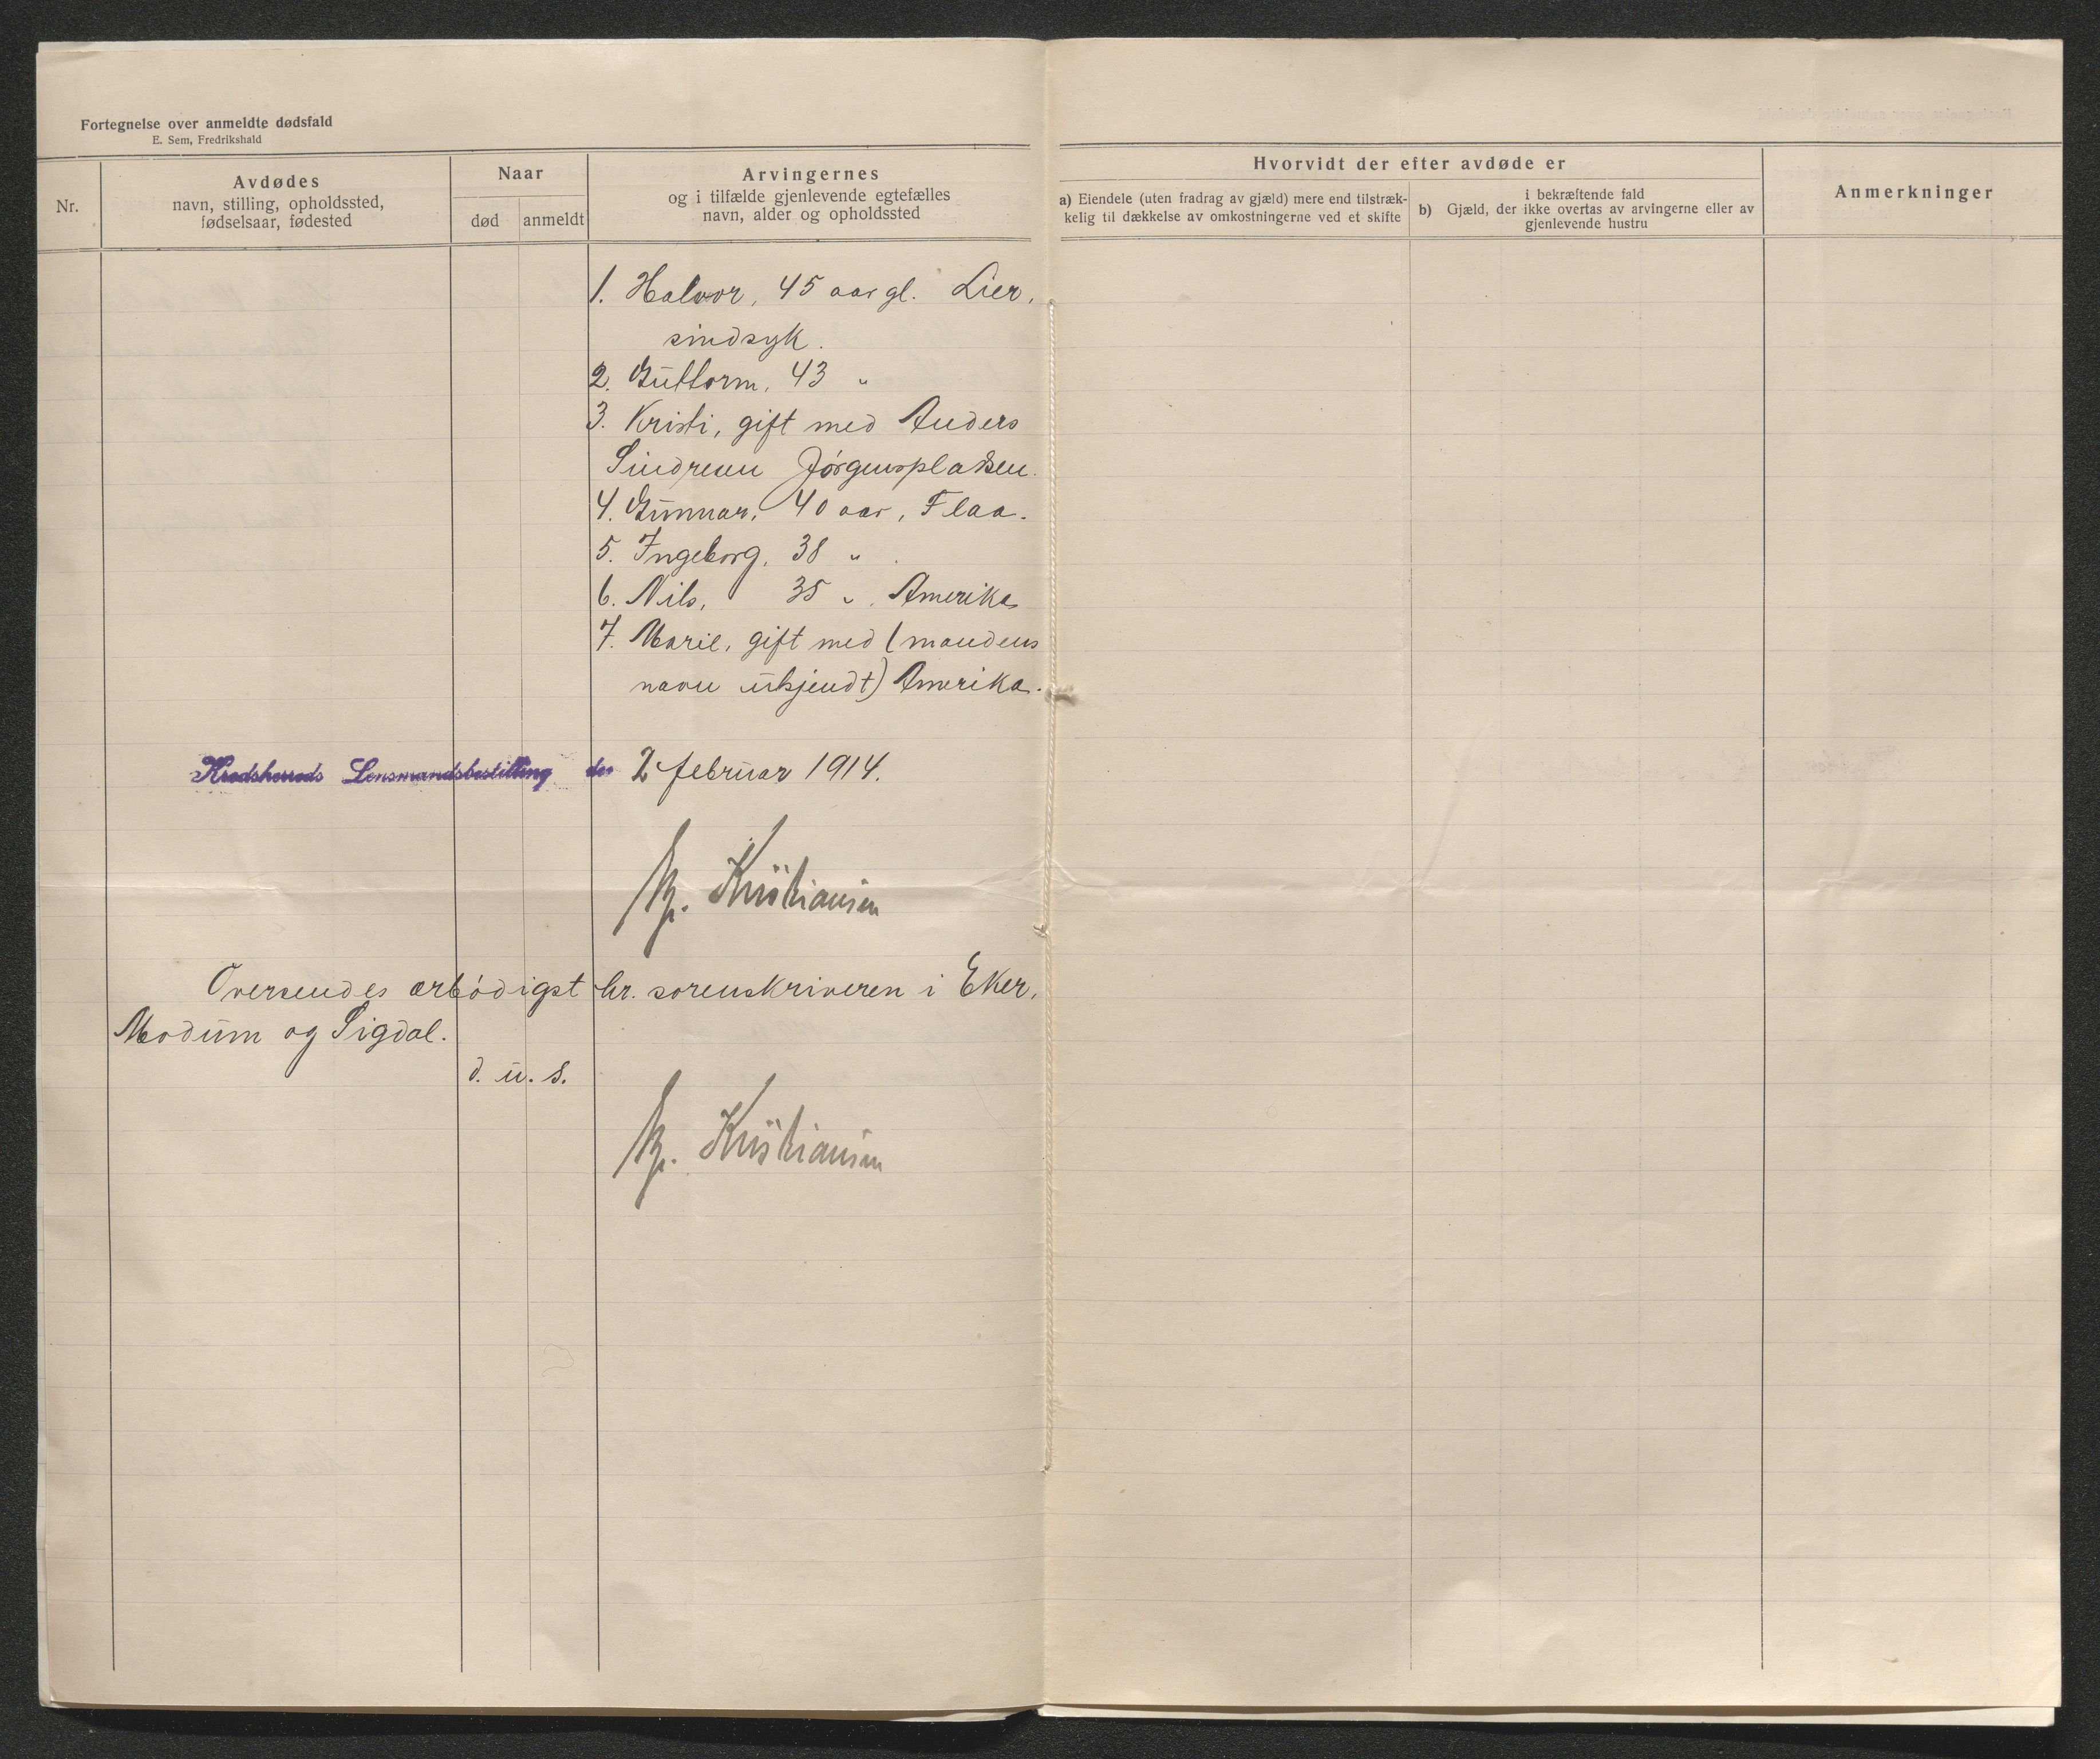 Fortegnelse over anmeldte dødsfald
E. Sem, Fredrikshald
Nr.
Avdødes
navn, stilling, opholdssted,
fødselsaar, fødested
Naar
død
anmeldt
Arvingernes
og i tilfælde gjenlevende egtefælles
navn, alder og opholdssted
Hvorvidt der efter avdøde er
a) Eiendele (uten fradrag av gjæld) mere end tilstræk-
kelig til dækkelse av omkostningerne ved et skifte
i bekræftende fald
b) Gjæld, der ikke overtas av arvingerne eller av
gjenlevende hustru
Anmerkninger
1. Halvor, 45 aar gl. Lier,
sindsyk.
2. Guttorm, 43 "
3. Kristi, gift med Anders
Sindrenn Jørgensplatsen.
4. Gunnar, 40 aar, Flaa.
5. Ingeborg, 38 " .
6. Nils, 35 " . Amerika
7. Marie, gift med (mandens
navn ukjendt) Amerika.
Krødsherreds Lensmandsbestilling den 2 februar 1914.
Kr. Kristiansen
Oversendes ærbødigst hr. sorenskriveren i Eker,
Modum og Sigdal.
d. u. s.
Kr. Kristiansen